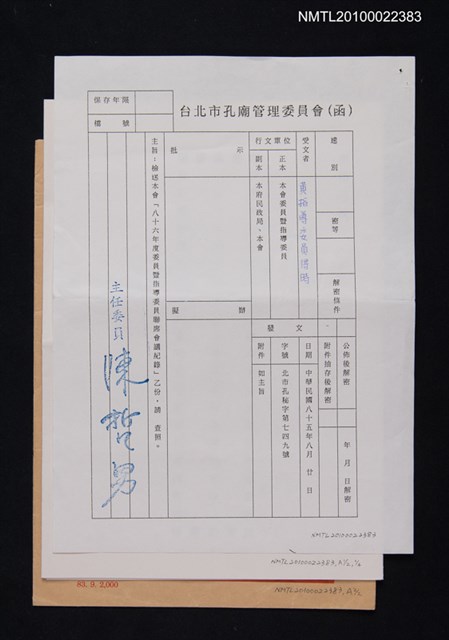 NMTL20100022383
保存年限
檔號
台北市孔廟管理委員會(函)
速別
密等
解密條件
公佈後解密
附件抽存後解密
年 月 日解密
受文者
行文單位
正本
副本
本會委員暨指導委員
本府民政局、本會
發文
日期
字號
附件
中華民國八十五年八月廿日
北市孔秘字第七四九號
如主旨
批示
擬辦
主旨:檢送本會「八十六年度委員暨指導委員聯席會議紀錄」乙份,請 查照。
主任委員 陳哲男
NMTL20100022383
NMTL20100022383, A½, ½
83. 9. 2,000
NMTL20100022383, A½